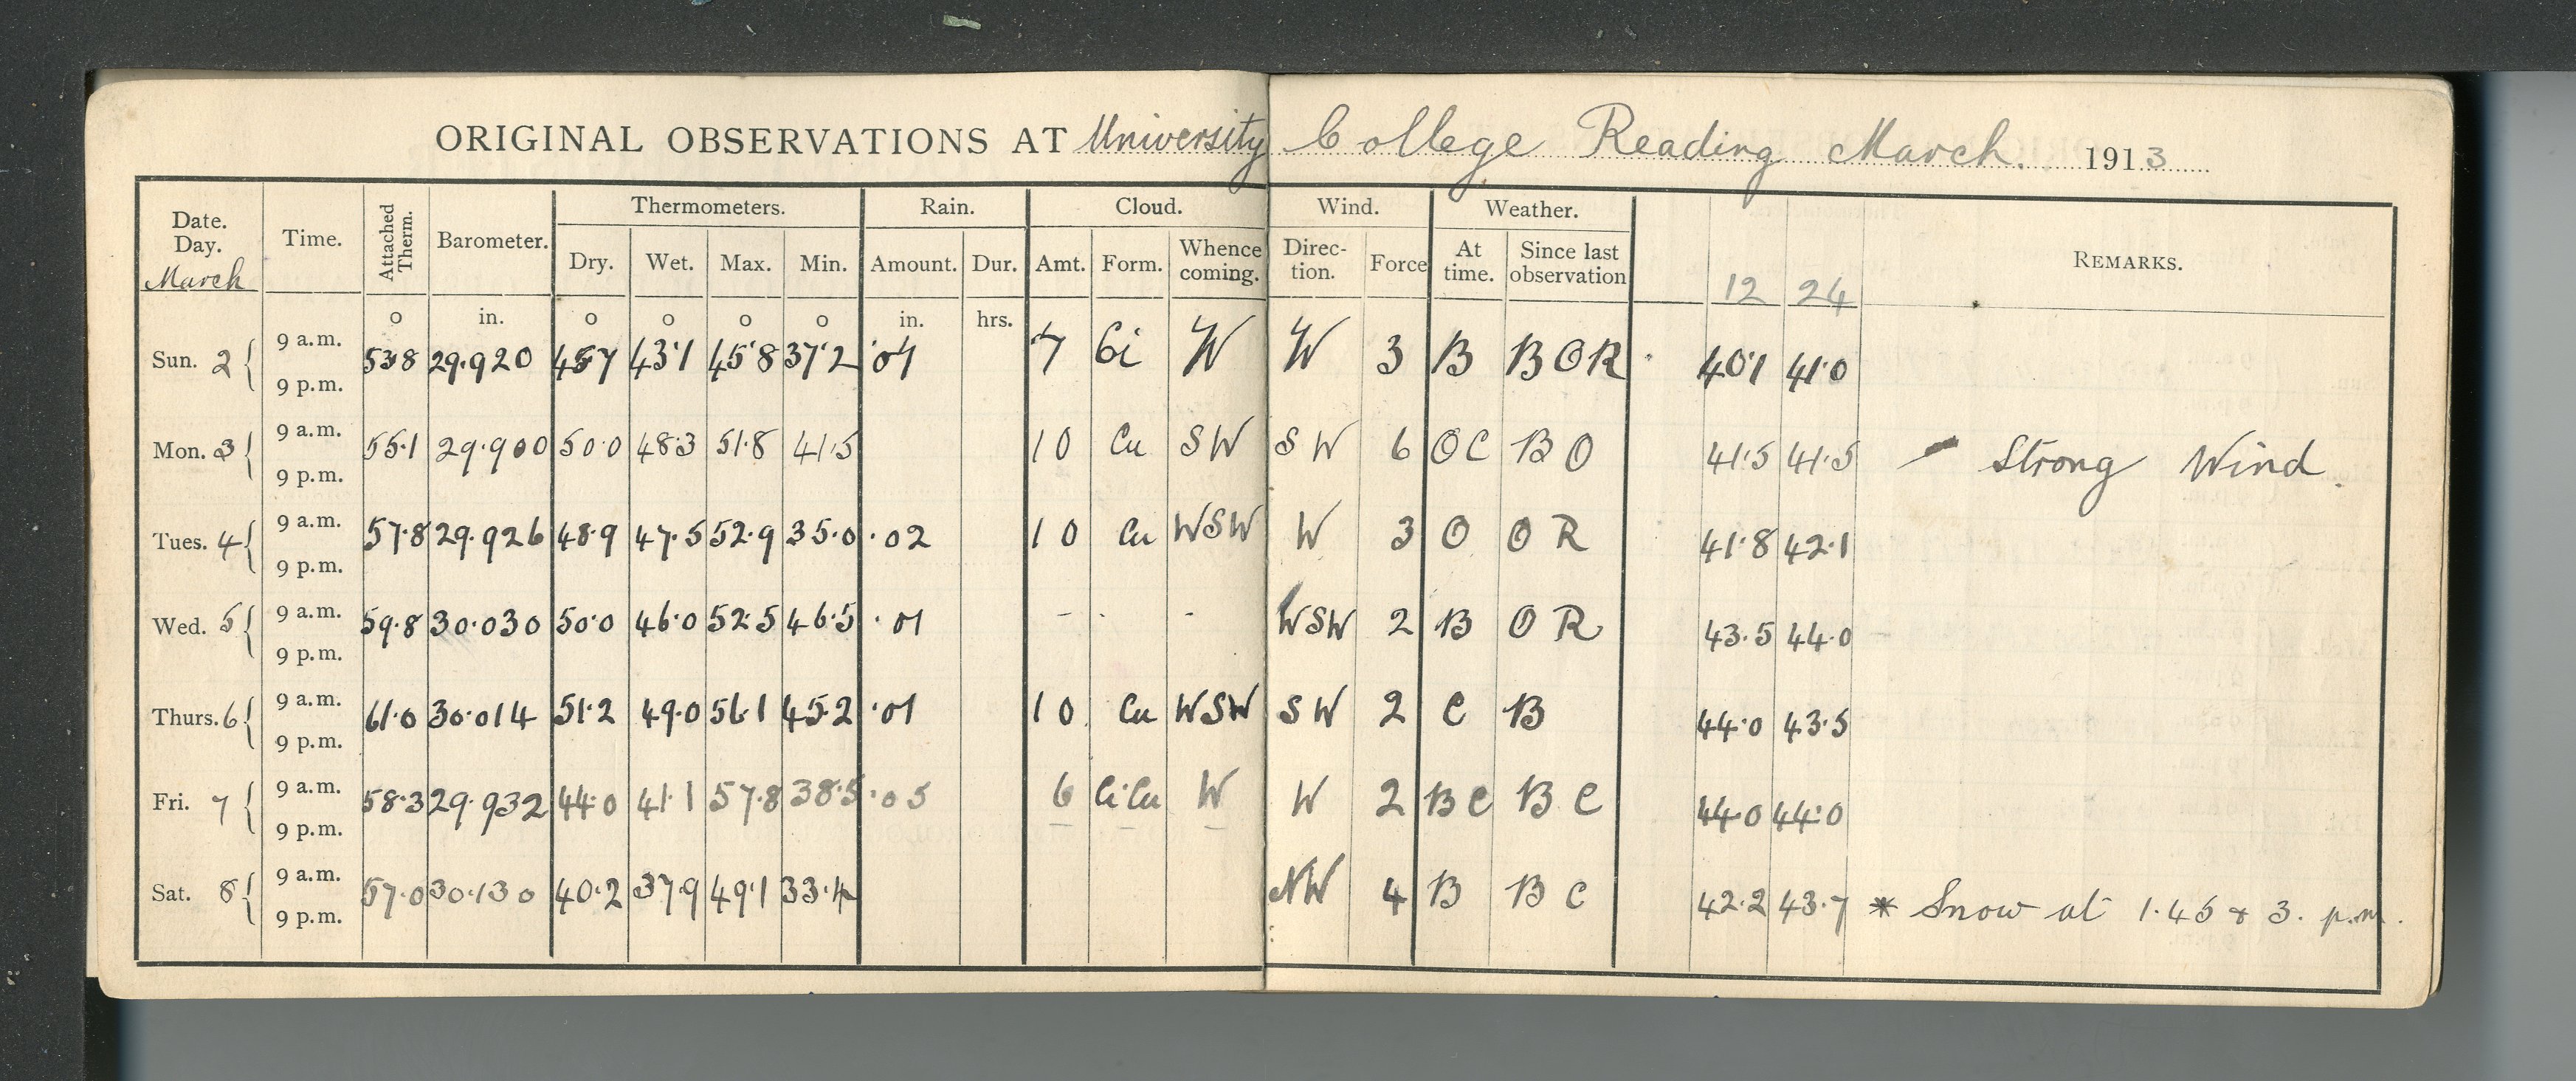 ORIGINAL OBSERVATIONS AT University College Reading March. 1913
Date. Day. March Time. Attached Therm. Barometer. Thermometers. Dry. Wet. Max. Min. Rain. Amount. Dur. Cloud. Amt. Form. Whence coming. Wind. Direc- tion. Force Weather. At time. Since last observation 12 24 REMARKS.
o in. o o o o in. hrs.
Sun. 2 { 9 a.m. 53.8 29.920 45.7 43.1 45.8 37.2 .07 7 Ci W W 3 B B O R 40.1 41.0
9 p.m.
Mon. 3 { 9 a.m. 55.1 29.900 50.0 48.3 51.8 41.5 10 Cu SW SW 6 O C B O 41.5 41.5 - Strong Wind.
9 p.m.
Tues. 4 { 9 a.m. 57.8 29.926 48.9 47.5 52.9 35.0 .02 10 Cu WSW W 3 O O R 41.8 42.1
9 p.m.
Wed. 5 { 9 a.m. 59.8 30.030 50.0 46.0 52.5 46.5 .01 - . - WSW 2 B O R 43.5 44.0
9 p.m.
Thurs. 6 { 9 a.m. 61.0 30.014 51.2 49.0 56.1 45.2 .01 10 Cu WSW SW 2 C B 44.0 43.5
9 p.m.
Fri. 7 { 9 a.m. 58.3 29.932 44.0 41.1 57.8 38.5 .05 6 Ci Cu W W 2 B C B C 44.0 44.0
9 p.m.
Sat. 8 { 9 a.m. 57.0 30.130 40.2 37.9 49.1 33.4 NW 4 B B C 42.2 43.7 * Snow at 1.45 & 3. p.m.
9 p.m.